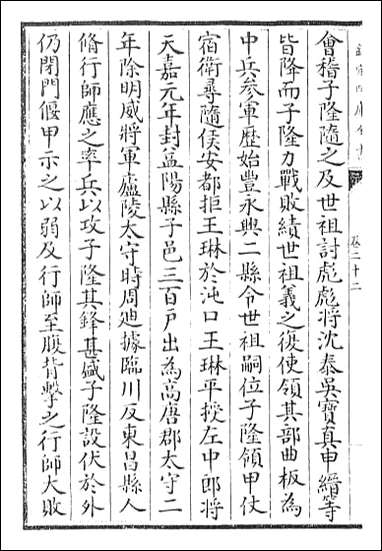 欽定四庫全書
卷二十二
會稽子隆隨之及世祖討彪彪將沈泰吳寶真申縉等
皆降而子隆力戰敗績世祖義之復使領其部曲板為
中兵參軍歴始豐永興二縣令世祖嗣位子隆領甲仗
宿衛尋隨侯安都拒王琳於沌口王琳平授左中郎將
天嘉元年封益陽縣子邑三百户出為高唐郡太守二
年除明威將軍廬陵太守時周迪據臨川反東昌縣人
脩行師應之率兵以攻子隆其鋒甚盛子隆設伏於外
仍閉門偃甲示之以弱及行師至腹背擊之行師大敗